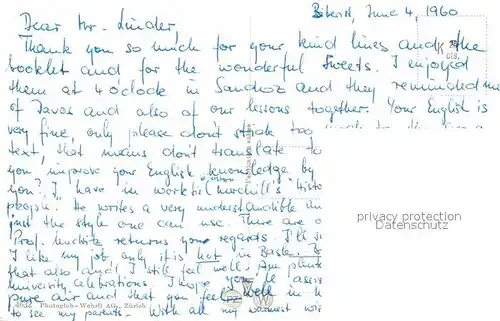 Biberist, June 4, 1960
Dear Mr. Linder,
Thank you so much for your kind lines and the
booklet and for the wonderful sweets. I enjoyed
them at 4 o'clock in Sandoz and they reminded me
of Davos and also of our lessons together. Your English is
very fine, only please don't stick too
text, that means don't translate
you improve your English knowledge by
you? I have in work Churchill's "Histo
people. He writes a very understandible
just the style one can use. There are
Prof. returns your regards. I'll
I like my job, only it is hot in Basle.
that also and I still feel well. Am
University celebrations. I hope you'll
pure air and that you feel well in
to see my parents. With all my warmest
privacy protection
Datenschutz
4032 Photoglob-Wehrli AG., Zürich